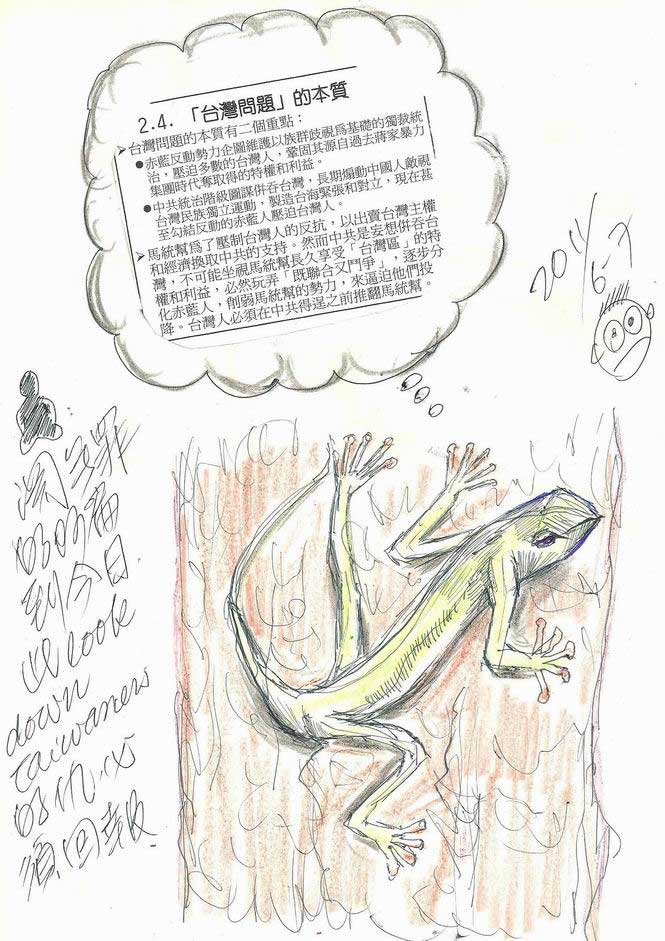 2.4. 「台灣問題」的本質
➤台灣問題的本質有二個重點：
●赤藍反動勢力企圖維護以族群歧視為基礎的獨裁統
治，壓迫多數的台灣人，鞏固其源自過去蔣家暴力
集團時代奪取得的特權和利益。
●中共統治階級圖謀併吞台灣，長期煽動中國人敵視
台灣民族獨立運動，製造台海緊張和對立，現在甚
至勾結反動的赤藍人壓迫台灣人。
➤馬統幫為了壓制台灣人的反抗，以出賣台灣主權
和經濟換取中共的支持。然而中共是妄想併吞台
灣，不可能坐視馬統幫長久享受「台灣區」的特
權和利益，必然玩弄「既聯合又鬥爭」，逐步分
化赤藍人，削弱馬統幫的勢力，來逼迫他們投
降。台灣人必須在中共得逞之前推翻馬統幫。
2011/
6-7
到今日
look
down
taiwaners
須回報